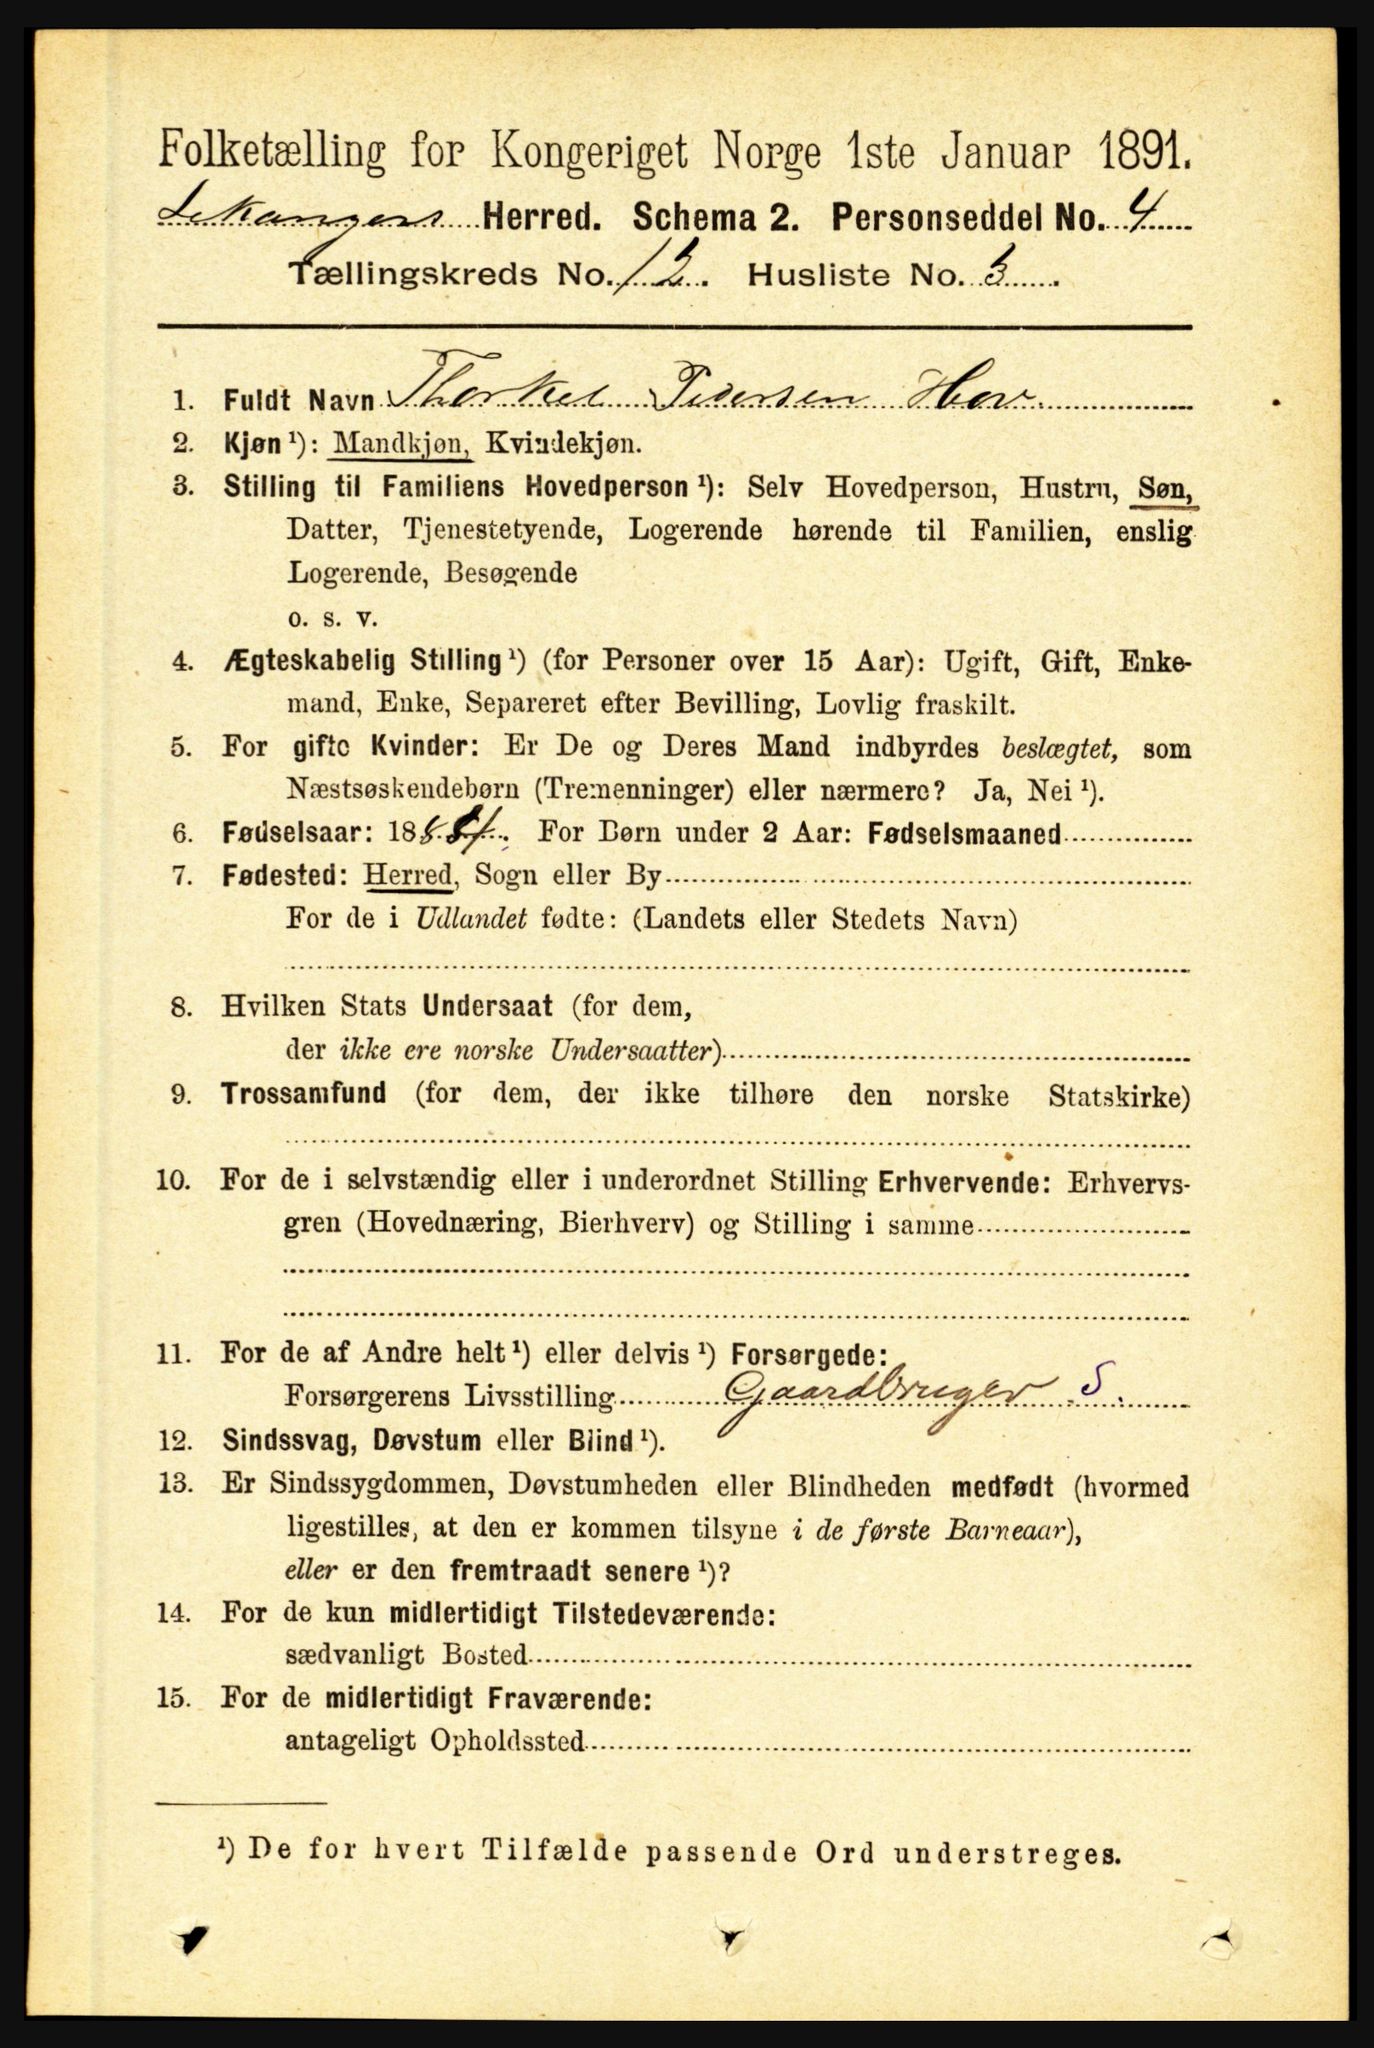 Folketælling for Kongeriget Norge 1ste Januar 1891.
Lekangers Herred. Schema 2. Personseddel No. 4
Tællingskreds No. 12. Husliste No. 3.
1. Fuldt Navn Thorkel Pedersen Hov.
2. Kjøn ¹): Mandkjøn, Kvindekjøn.
3. Stilling til Familiens Hovedperson ¹): Selv Hovedperson, Hustru, Søn,
Datter, Tjenestetyende, Logerende hørende til Familien, enslig
Logerende, Besøgende
o. s. v.
4. Ægteskabelig Stilling ¹) (for Personer over 15 Aar): Ugift, Gift, Enke-
mand, Enke, Separeret efter Bevilling, Lovlig fraskilt.
5. For gifte Kvinder: Er De og Deres Mand indbyrdes beslægtet, som
Næstsøskendebørn (Tremenninger) eller nærmere? Ja, Nei ¹).
6. Fødselsaar: 18 For Børn under 2 Aar: Fødselsmaaned
7. Fødested: Herred, Sogn eller By
For de i Udlandet fødte: (Landets eller Stedets Navn)
8. Hvilken Stats Undersaat (for dem,
der ikke ere norske Undersaatter)
9. Trossamfund (for dem, der ikke tilhøre den norske Statskirke)
10. For de i selvstændig eller i underordnet Stilling Erhvervende: Erhvervs-
gren (Hovednæring, Bierhverv) og Stilling i samme
11. For de af Andre helt ¹) eller delvis ¹) Forsørgede:
Forsørgerens Livsstilling Gaardbruger S.
12. Sindssvag, Døvstum eller Blind ¹).
13. Er Sindssygdommen, Døvstumheden eller Blindheden medfødt (hvormed
ligestilles, at den er kommen tilsyne i de første Barneaar),
eller er den fremtraadt senere ¹)?
14. For de kun midlertidigt Tilstedeværende:
sædvanligt Bosted
15. For de midlertidigt Fraværende:
antageligt Opholdssted
¹) De for hvert Tilfælde passende Ord understreges.